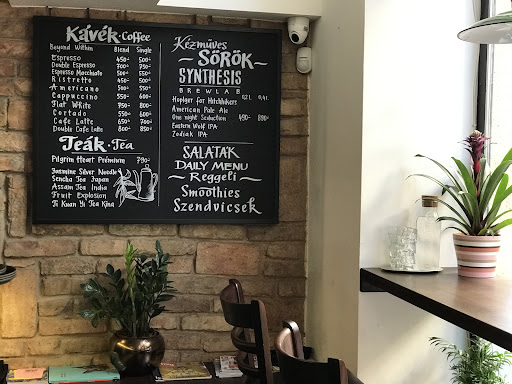 Kávék · Coffee
Beyond Within Blend Single
Espresso 450- 500-
Double Espresso 700-
Espresso Macchiato 500-
Ristretto 450-
Americano 500-
Cappuccino 550- 600-
Flat White 750- 800-
Cortado 550- 600-
Cafe Latte 650- 700-
Double Cafe Latte 800- 850-
Teák · Tea
Pilgrim Heart Prémium 790-
Jasmine Silver Needle
Sencha Tea Japan
Assam Tea India
Fruit Explosion
Ti Kuan Yi Tea Kina
Kézműves
SÖRÖK
SYNTHESIS
BREWLAB
Hopiger for Hitchhikers 0,2 l. 0,4 l.
American Pale Ale
One night Seduction 490- 890-
Eastern Wolf IPA
Zodiak IPA
SALÁTÁK
DAILY MENU
Reggeli
Smoothies
Szendvicsek